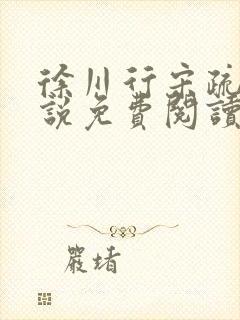 徐川行宋疏
說免費閱讀
嚴堵